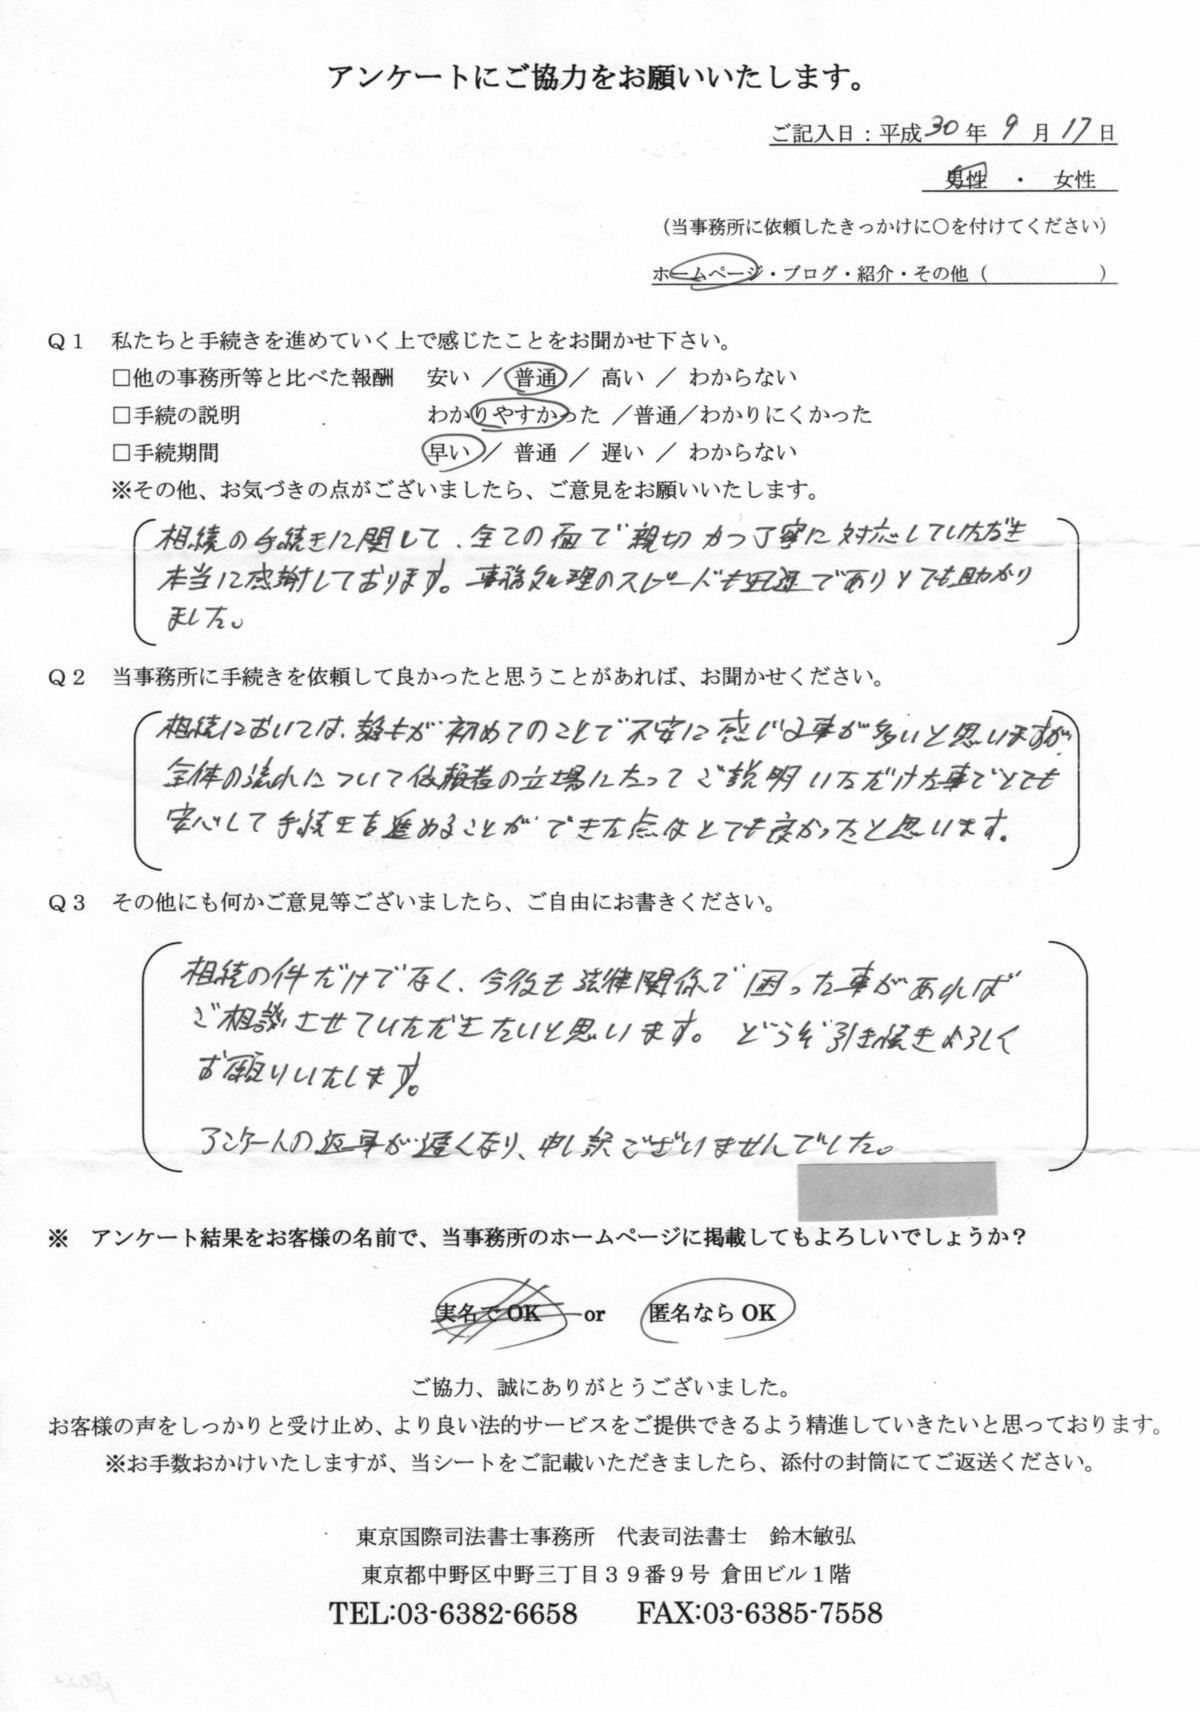 アンケートにご協力をお願いいたします。
ご記入日：平成30年 9 月 17 日
男性 ・ 女性
（当事務所に依頼したきっかけに○を付けてください）
ホームページ・ブログ・紹介・その他（ ）
Q１ 私たちと手続きを進めていく上で感じたことをお聞かせ下さい。
□他の事務所等と比べた報酬 安い ／ 普通 ／ 高い ／ わからない
□手続の説明 わかりやすかった ／普通／わかりにくかった
□手続期間 早い ／ 普通 ／ 遅い ／ わからない
※その他、お気づきの点がございましたら、ご意見をお願いいたします。
相続の手続きに関して、全ての面で親切かつ丁寧に対応していただき
本当に感謝しております。事務処理のスピードも迅速でありとても助かり
ました。
Q２ 当事務所に手続きを依頼して良かったと思うことがあれば、お聞かせください。
相続においては、誰もが初めてのことで不安に感じる事が多いと思いますが、
全体の流れについて依頼者の立場にたってご説明いただけた事でとても
安心して手続きを進めることができた点はとても良かったと思います。
Q３ その他にも何かご意見等ございましたら、ご自由にお書きください。
相続の件だけでなく、今後も法律関係で困った事があれば
ご相談させていただきたいと思います。どうぞ引き続きよろしく
お願いいたします。
アンケートの返事が遅くなり、申し訳ございませんでした。
※ アンケート結果をお客様の名前で、当事務所のホームページに掲載してもよろしいでしょうか？
実名で OK or 匿名なら OK
ご協力、誠にありがとうございました。
お客様の声をしっかりと受け止め、より良い法的サービスをご提供できるよう精進していきたいと思っております。
※お手数おかけいたしますが、当シートをご記載いただきましたら、添付の封筒にてご返送ください。
東京国際司法書士事務所 代表司法書士 鈴木敏弘
東京都中野区中野三丁目３９番９号 倉田ビル１階
TEL:03-6382-6658 FAX:03-6385-7558